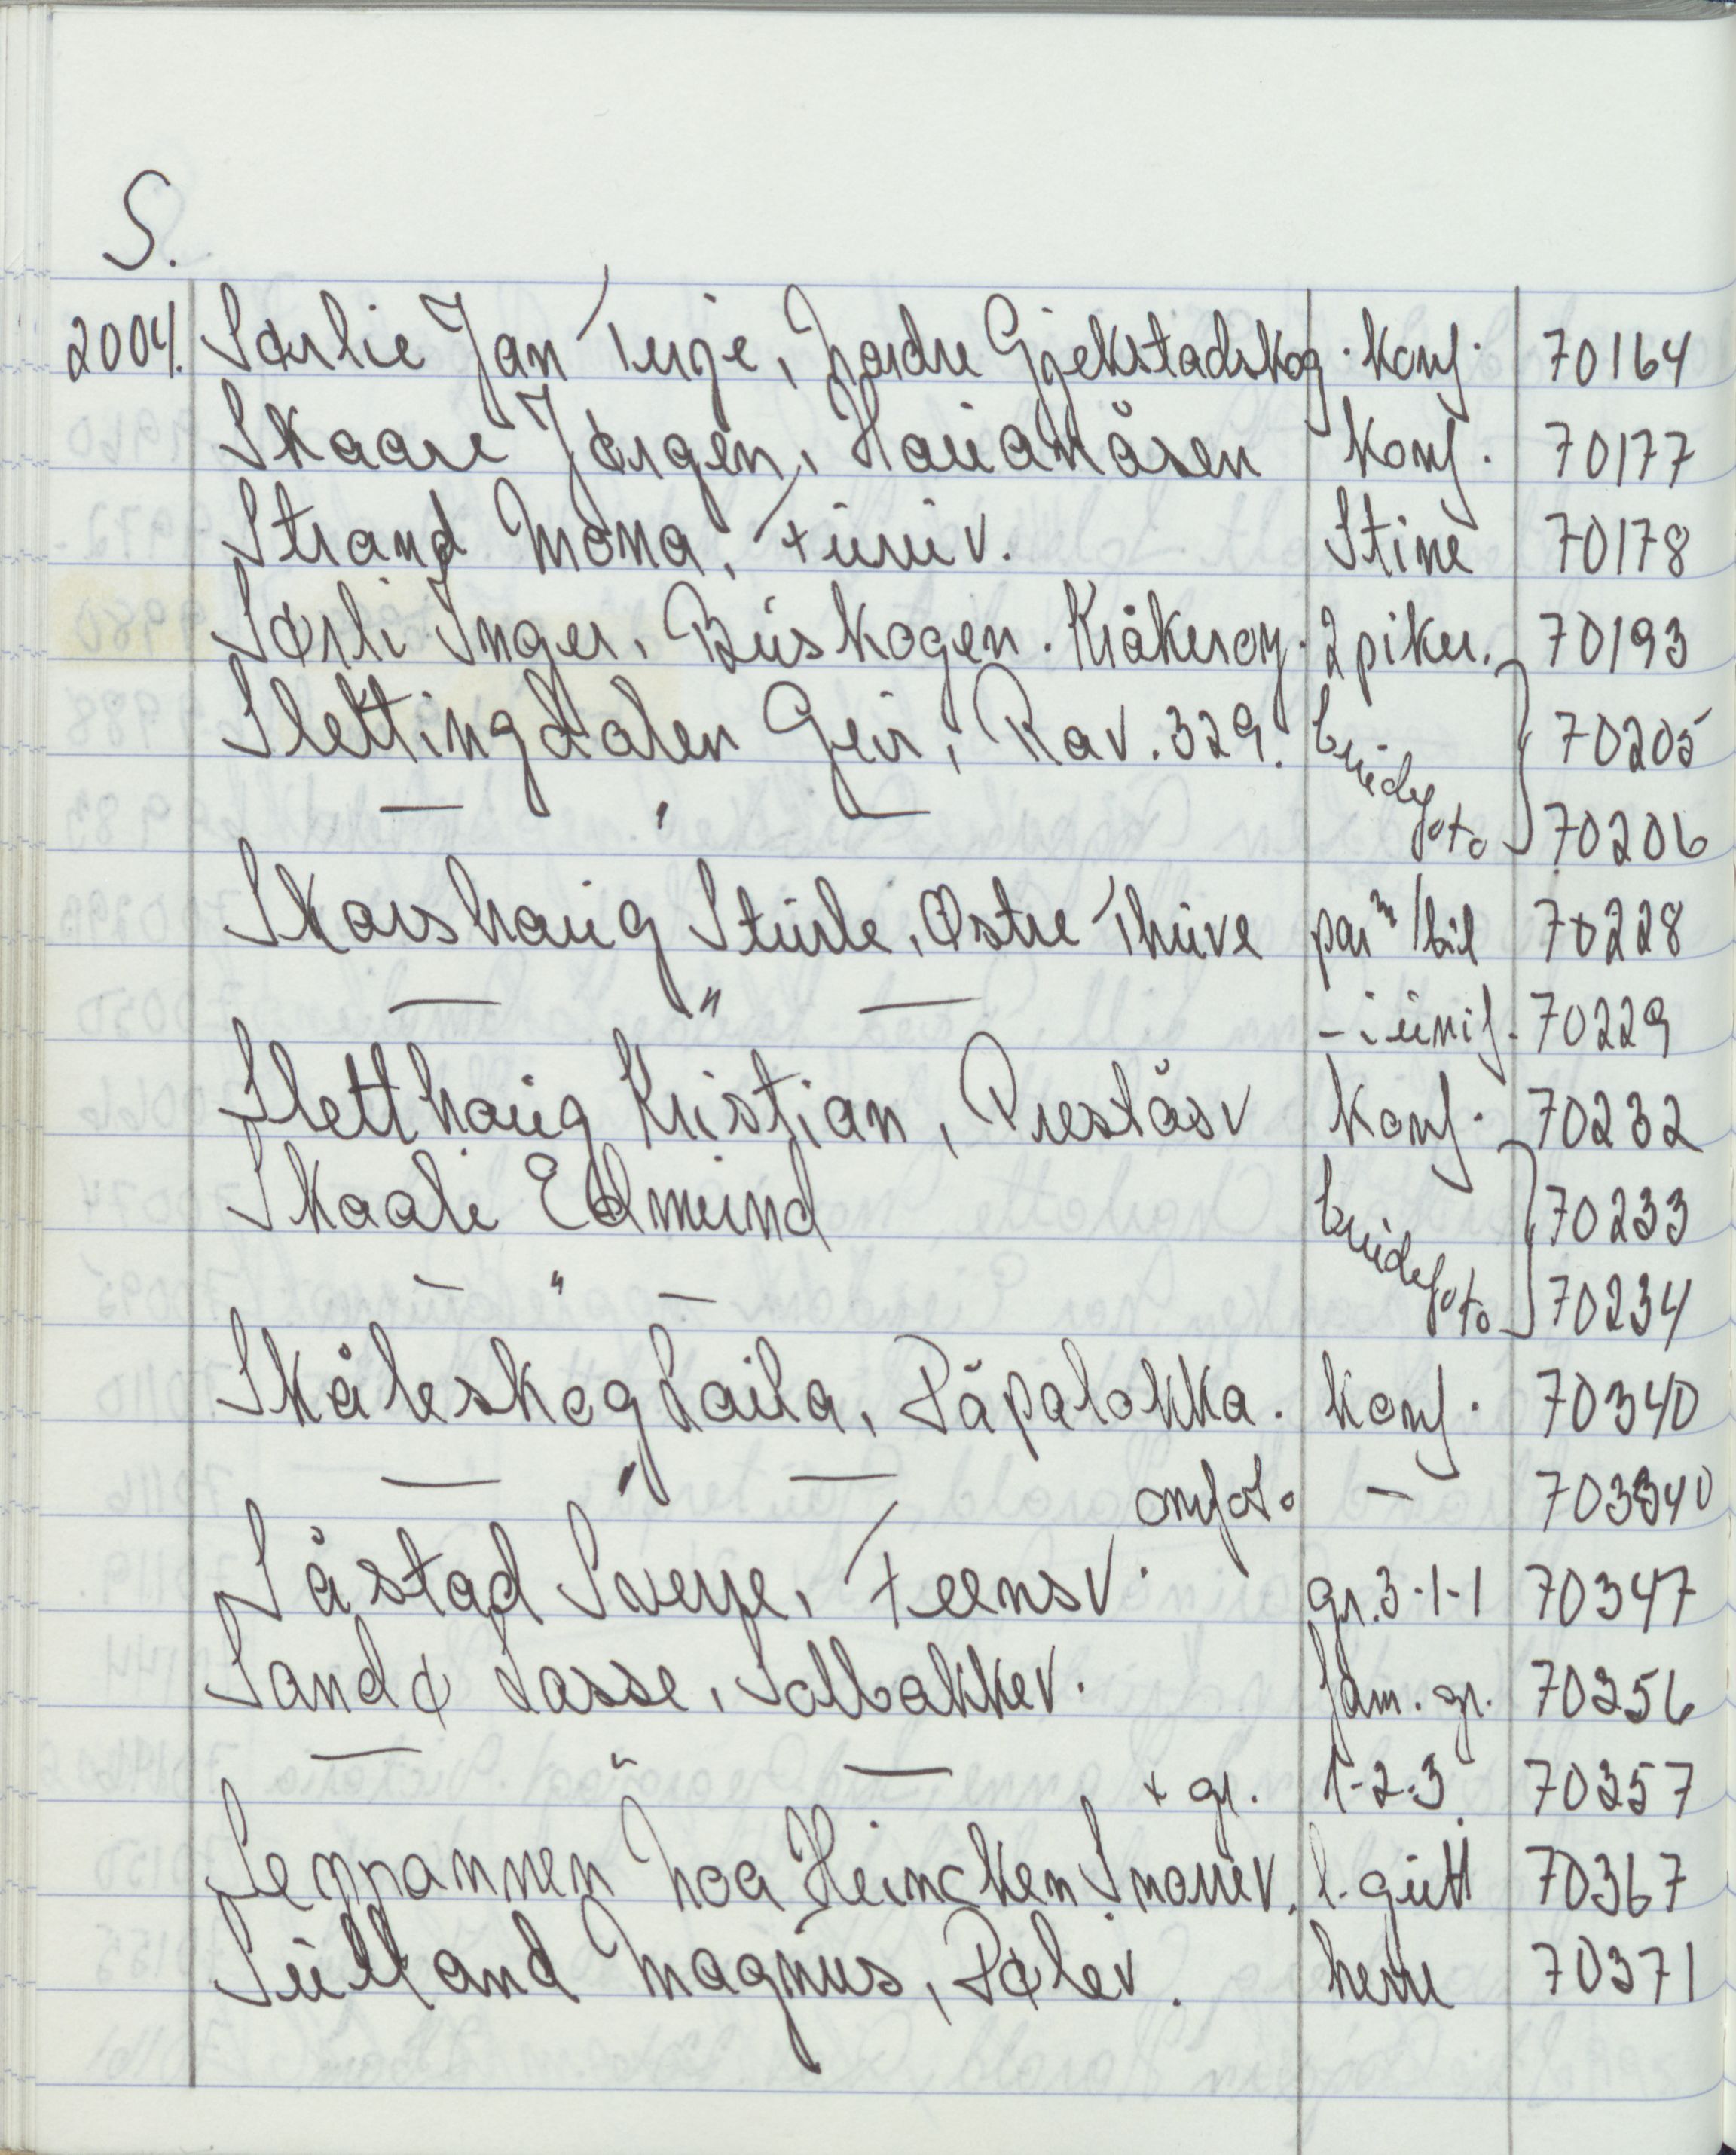 S.
2004. Sørlie Jan Terje, Nordre Gjekstadskog. konf. 70164
Skaare Jørgen, Haukåsen konf. 70177
Strand Mona, Furuv. Stine 70178
Sørli Inger, Buskogen. Kråkerøy. 2 piker. 70193
Slettingdalen Geir, Rav. 329. brudefoto 70205
— " — 70206
Skorshaug Sturle, Østre Thuve par m/bil 70228
— " — - i unif. 70229
Sletthaug Kristian, Preståsv konf. 70232
Skaale Edmund brudefoto 70233
— " — 70234
Skåleskog Laila, Påpaløkka. konf. 70340
— " — omfot. — 703340
Såstad Sverre, Feensv. gr. 3-1-1 70347
Sandø Lasse, Solbakkev. fam. gr. 70356
— " — + gr. 1-2-3 70357
Seppannen Noa Heincken Snorrev. l. gutt 70367
Sultand Magnus, Pølev. herre 70371